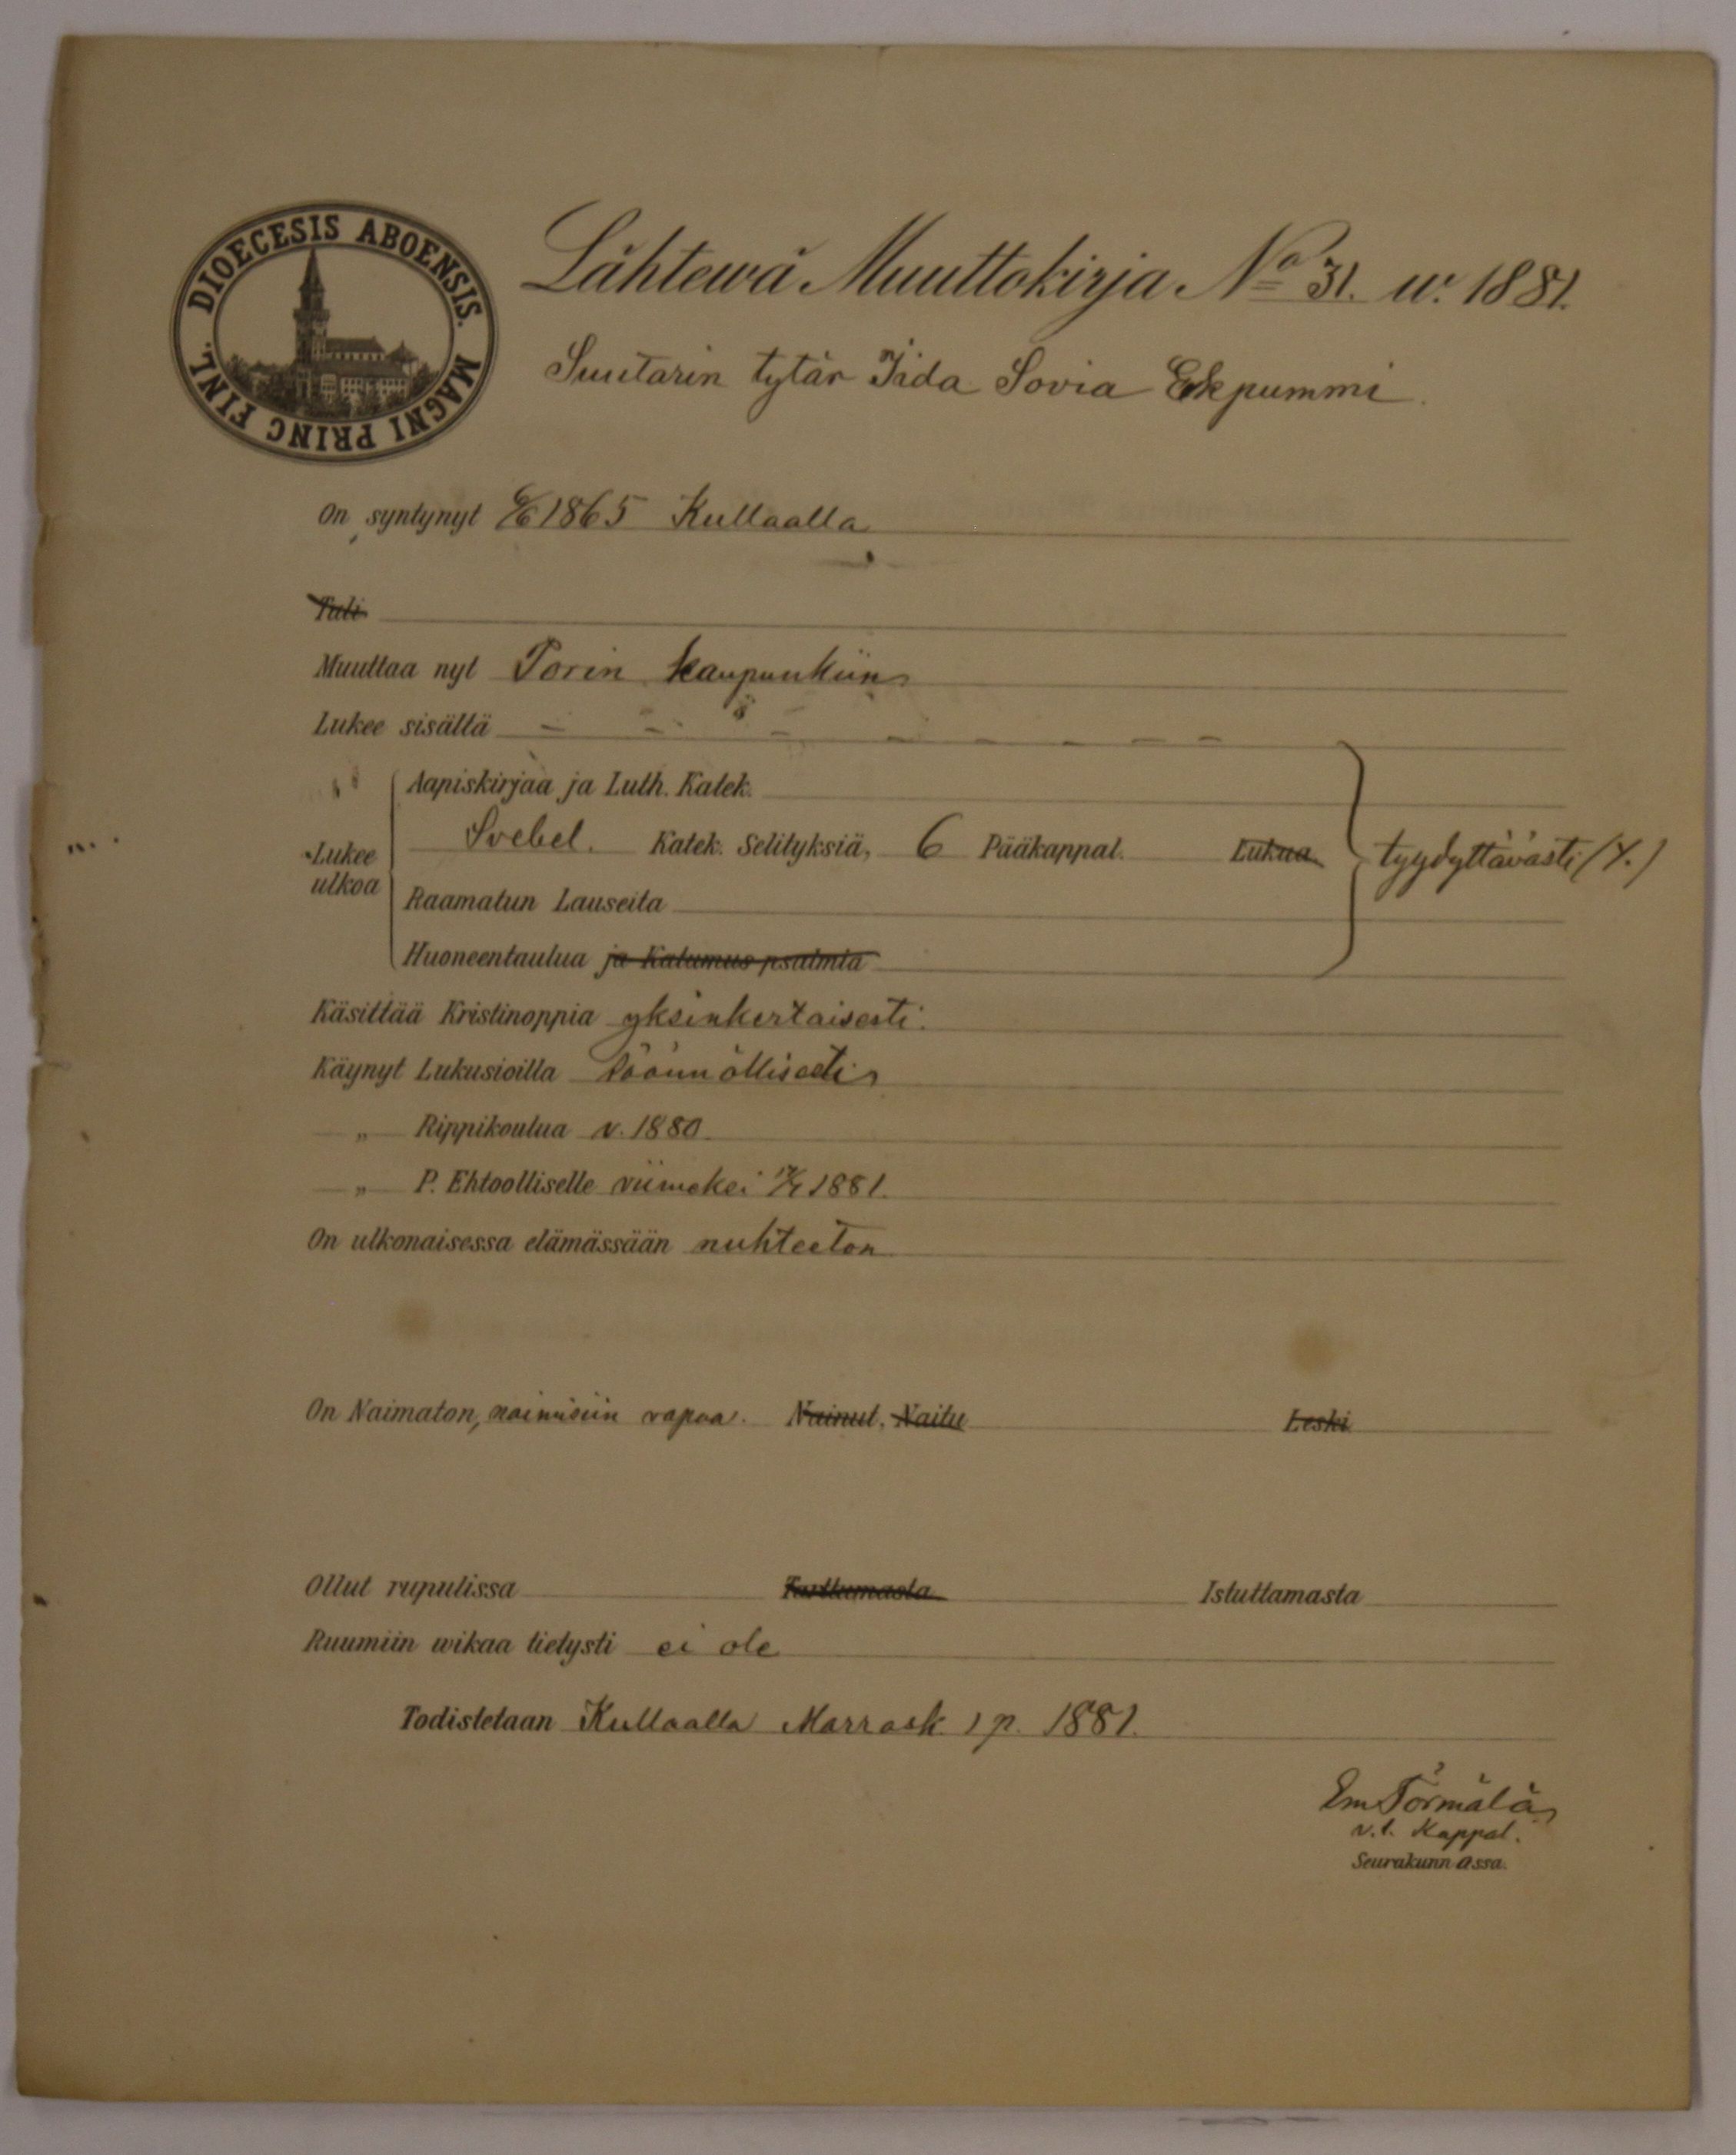 DIOECESIS ABOENSIS. MAGNI PRINC FINL.
Lähtewä Muuttokirja No 31. w. 1881.
Suutarin tytär Iida Sovia Ekpummi.
On syntynyt 6/6 1865 Kullaalla
Tuli
Muuttaa nyt Porin kaupunkiin
Lukee sisältä – – – – – – – –
Aapiskirjaa ja Luth. Katek.
Lukee ulkoa Svebel. Katek. Selityksiä, 6 Pääkappal. Lukua tyydyttävästi (Y.)
Raamatun Lauseita
Huoneentaulua ja Katumus psalmia
Käsittää Kristinoppia yksinkertaisesti.
Käynyt Lukusioilla säännöllisesti
„ Rippikoulua v. 1880.
„ P. Ehtoolliselle viimeksi 1881.
On ulkonaisessa elämässään nuhteeton
On Naimaton, naimisiin vapaa. Nainut, Naitu Leski
Ollut rupulissa Tarttumasta Istuttamasta
Ruumiin wikaa tietysti ei ole
Todistetaan Kullaalla Marrask. 1 p. 1881.
Em Törmälä
v.t. Kappal.
Seurakunnassa.